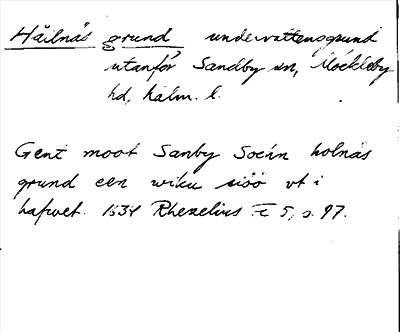 Hälnäs grund undervattensgrund
utanför Sandby sn, Möckleby
hd, Kalm. l.
Gent moot Sanby Socín holnäs
grund een wiku siöö vt i
hafwet. 1634 Rhezelius Fc 5, s. 97.